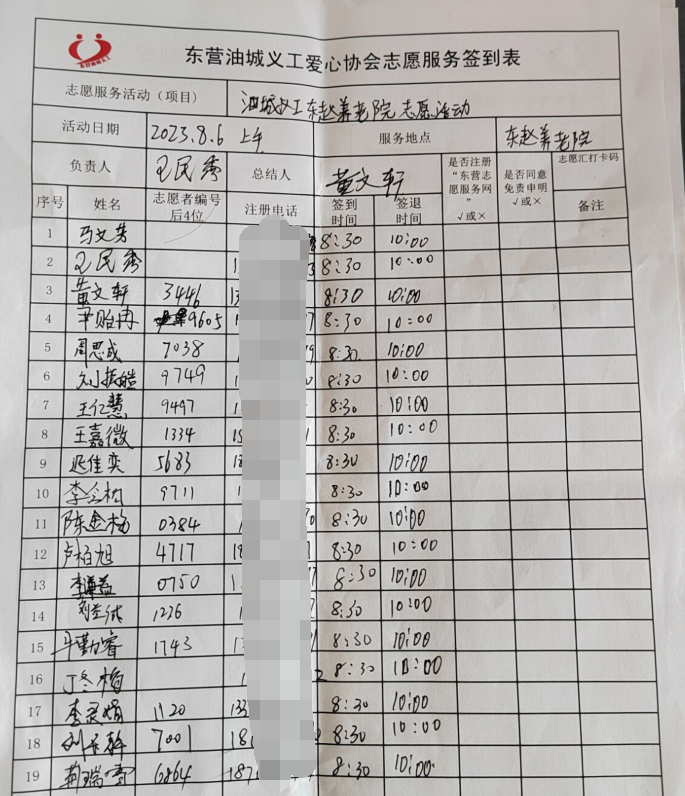 东营油城义工
东营油城义工爱心协会志愿服务签到表
志愿服务活动（项目） 油城义工东赵养老院志愿活动
活动日期 2023.8.6 上午 服务地点 东赵养老院
负责人 王民秀 总结人 黄文轩 是否注册“东营志愿服务网”√或× 是否同意免责申明√或× 志愿汇打卡码
序号 姓名 志愿者编号后4位 注册电话 签到时间 签退时间 备注
1 马文芳 8:30 10:00
2 王民秀 8:30 10:00
3 黄文轩 3446 8:30 10:00
4 9605 8:30 10:00
5 周思成 7038 8:30 10:00
6 刘振皓 9749 8:30 10:00
7 王仁慧 9497 8:30 10:00
8 王嘉微 1334 8:30 10:00
9 延佳奕 5683 8:30 10:00
10 9711 8:30 10:00
11 陈金梅 0384 8:30 10:00
12 卢柏旭 4717 8:30 10:00
13 0750 8:30 10:00
14 1226 8:30 10:00
15 1743 8:30 10:00
16 丁冬梅 8:30 10:00
17 李灵娟 1120 133 8:30 10:00
18 7001 8:30 10:00
19 荆瑞雪 6864 187 8:30 10:00